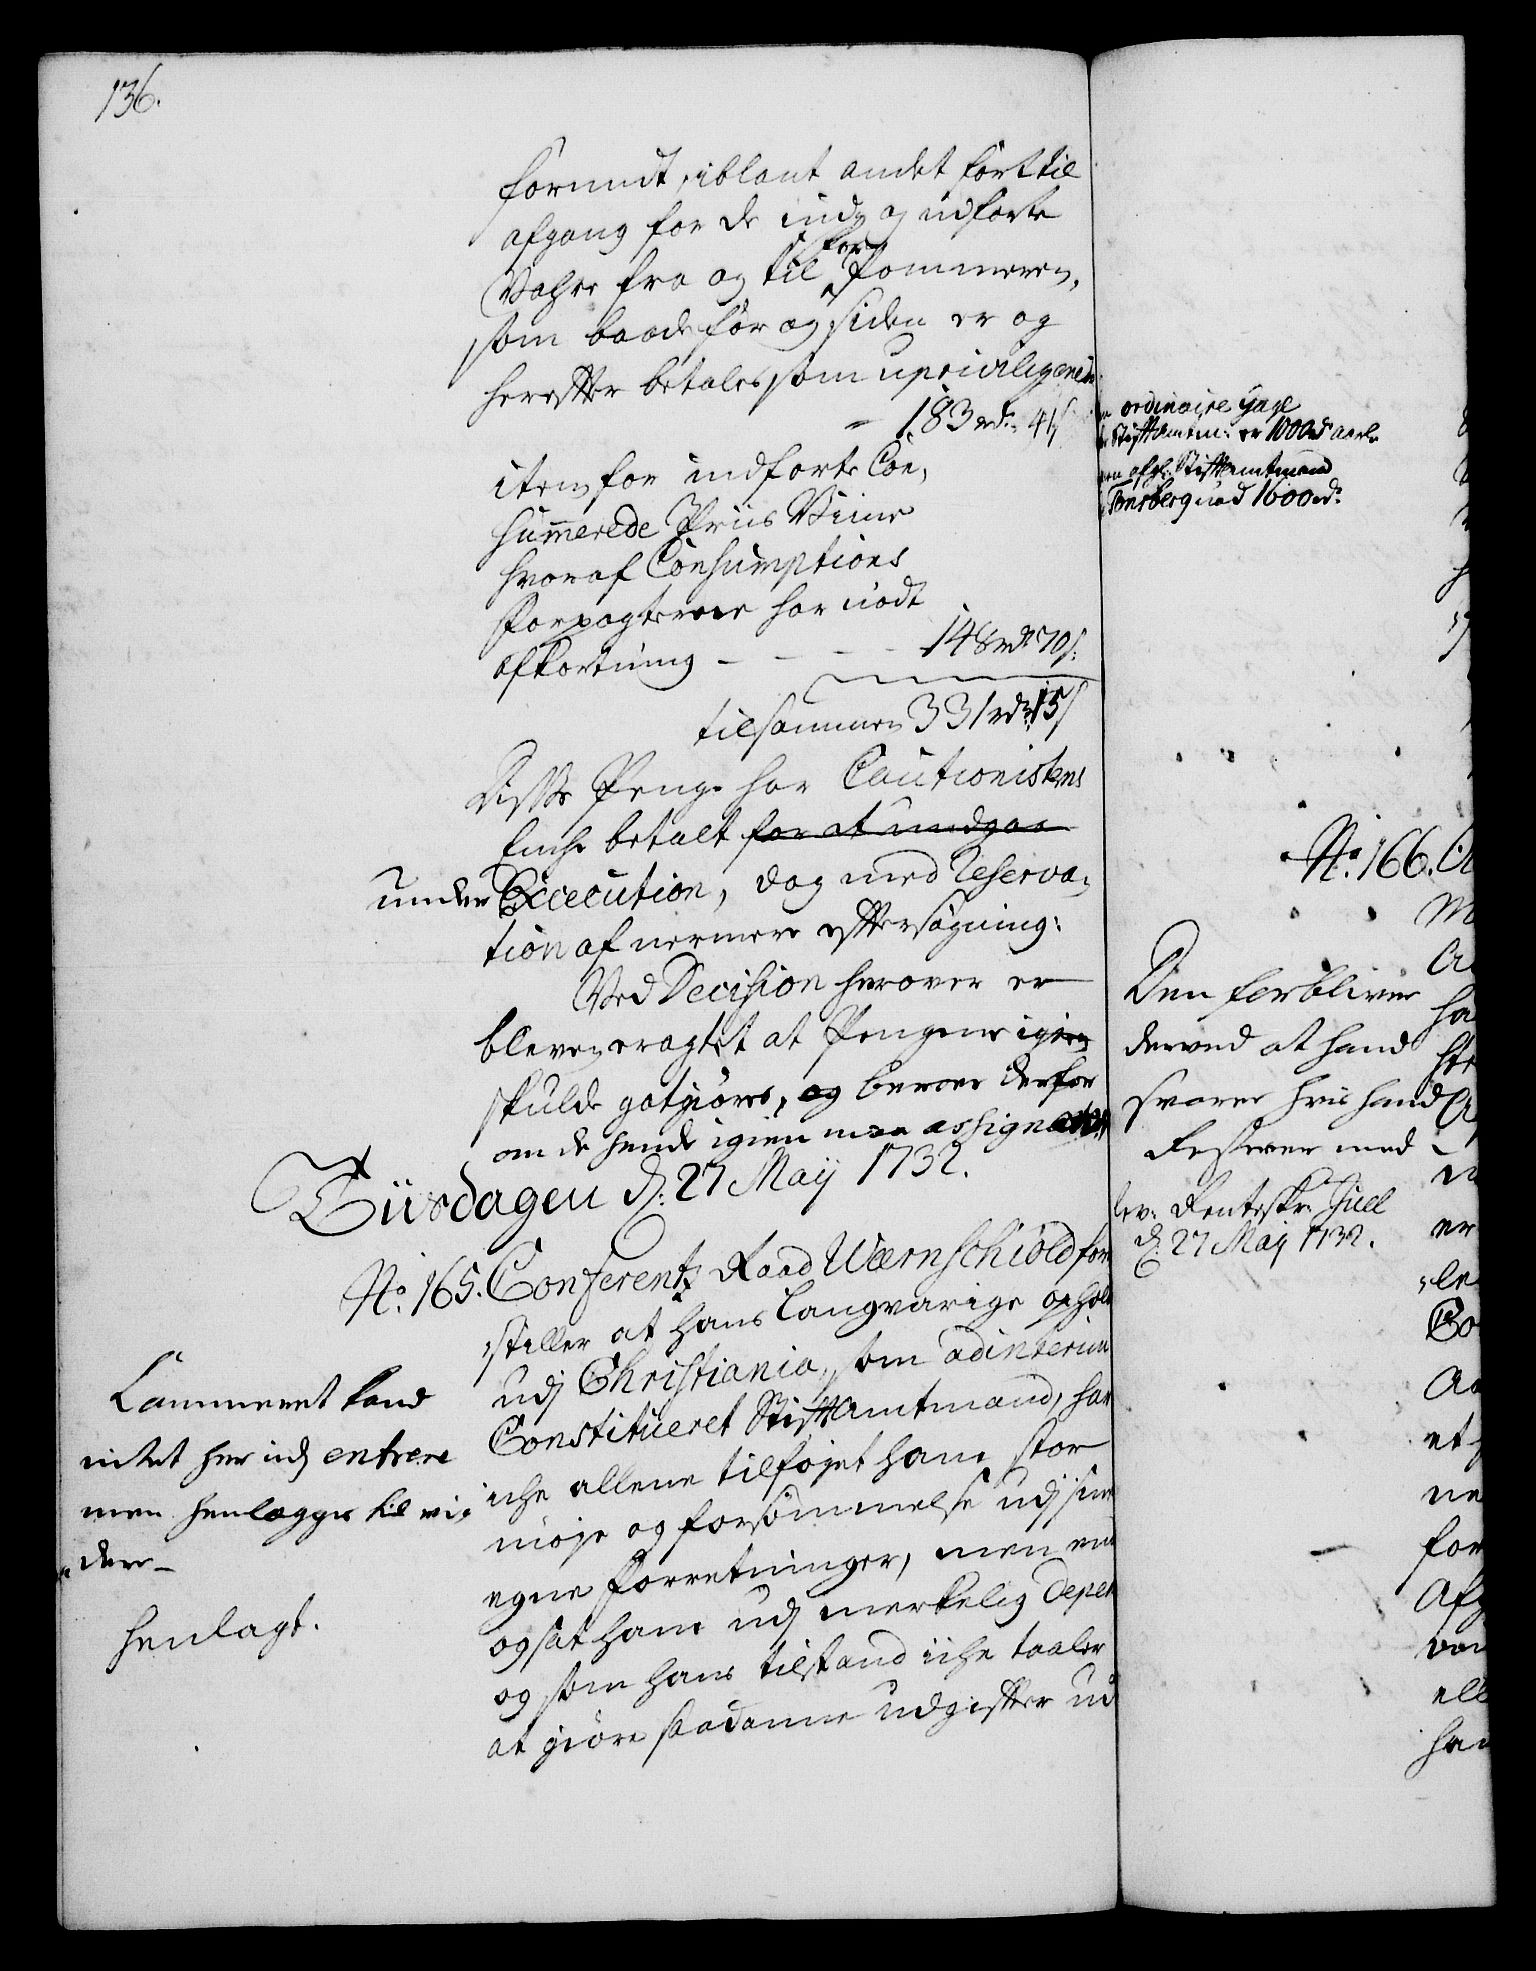 136.
formidt, iblant andet fört til
afgang for de ind₂ og udförte
for
Vahre fra og til Pommeren,
som baade för og siden er og
herefter betales som upriviligerede
- 183 rd: 41 s
item for indförte Con₂
sumerede Priis Viine
hvoraf Consumptions
Forpagterne har nödt
afkortning - - - - 148 rd: 70 s:
tilsammen 331 rd: 15 s
Disse Penge har Cautionistens
Enche betalt for at undgaa
under Execution, dog med Reserva₂
tion af nermere eftersøgning:
Ved Decision herover er
bleven eragtet at Pengene igien
skulde gotgiöres, og beroer derfor
om de hende igien maa assigneres
Tiisdagen d: 27 Maij 1732.
No. 165. Conferentz Raad Wærnschiold fore
stiller at hans langvarige ophold
udj Christiania, som adinterim
Constitueret Stiftamtmand, har
iche allene tilføjet ham stor
möje og forsömmelse udj sine
egne Forretninger, men end
og sat ham udj merkelig Depen
og som hans tilstand iche taaler
at giöre saadanne udgifter ud
Cammeret kand
intet her udj entrere
men henlægges til vi₂
dere_
henlagt.
ordinaire Gage
Stiftamtm: er 1000 rd aarl:
afg: Stiftamtmand
Tonsberg nöd 1600 rd:
No. 166.
Den forbliver
derved at hand
svarer hvis hand
Resterer med
lev: Renteskr: Juel
d: 27 Maij 1732.